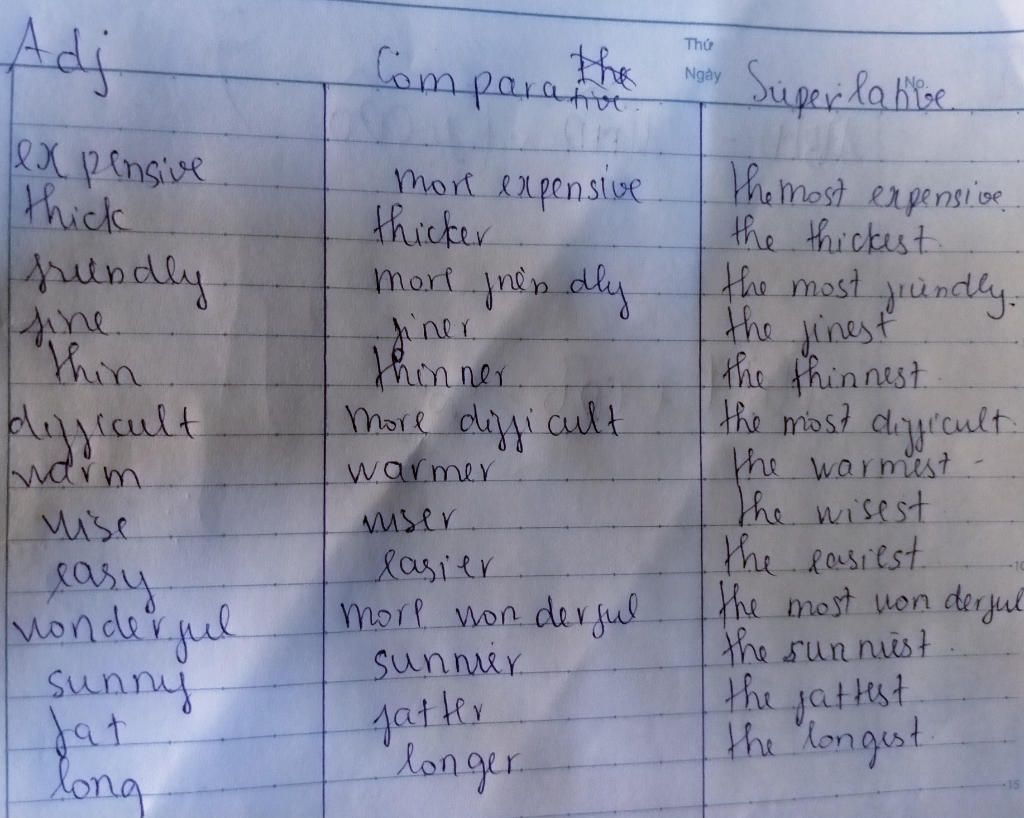 Adj Comparative the Thứ Superlative
Ngày No.
expensive more expensive the most expensive.
thick thicker the thickest.
friendly more friendly the most friendly.
fine finer the finest
thin thinner the thinnest.
difficult more difficult the most difficult.
warm warmer the warmest -
wise wiser the wisest
easy easier the easiest
wonderful more wonderful the most wonderful
sunny sunnier the sunniest.
fat fatter the fattest
long longer the longest.
10
15